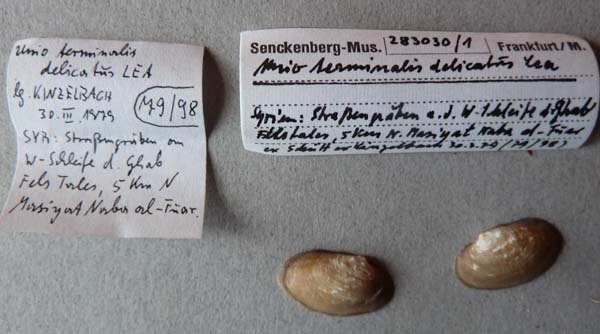 Unio terminalis
delicatus LEA
lg. KINZELBACH
30. III. 1979
M9/98
SYR: Straßengräben am
W-Schleife d. Ghab
Fels Tales, 5 Km N
Masiyat Naba al-Fuar.
Senckenberg-Mus. 283030/1 Frankfurt/M.
Unio terminalis delicatus Lea
Syrien: Straßengräben a. d. W-Schleife d. Ghab
Felstales, 5 Km N. Masiyat Naba al-Fuar
ex Schütt ex Kinzelbach 30.3.79